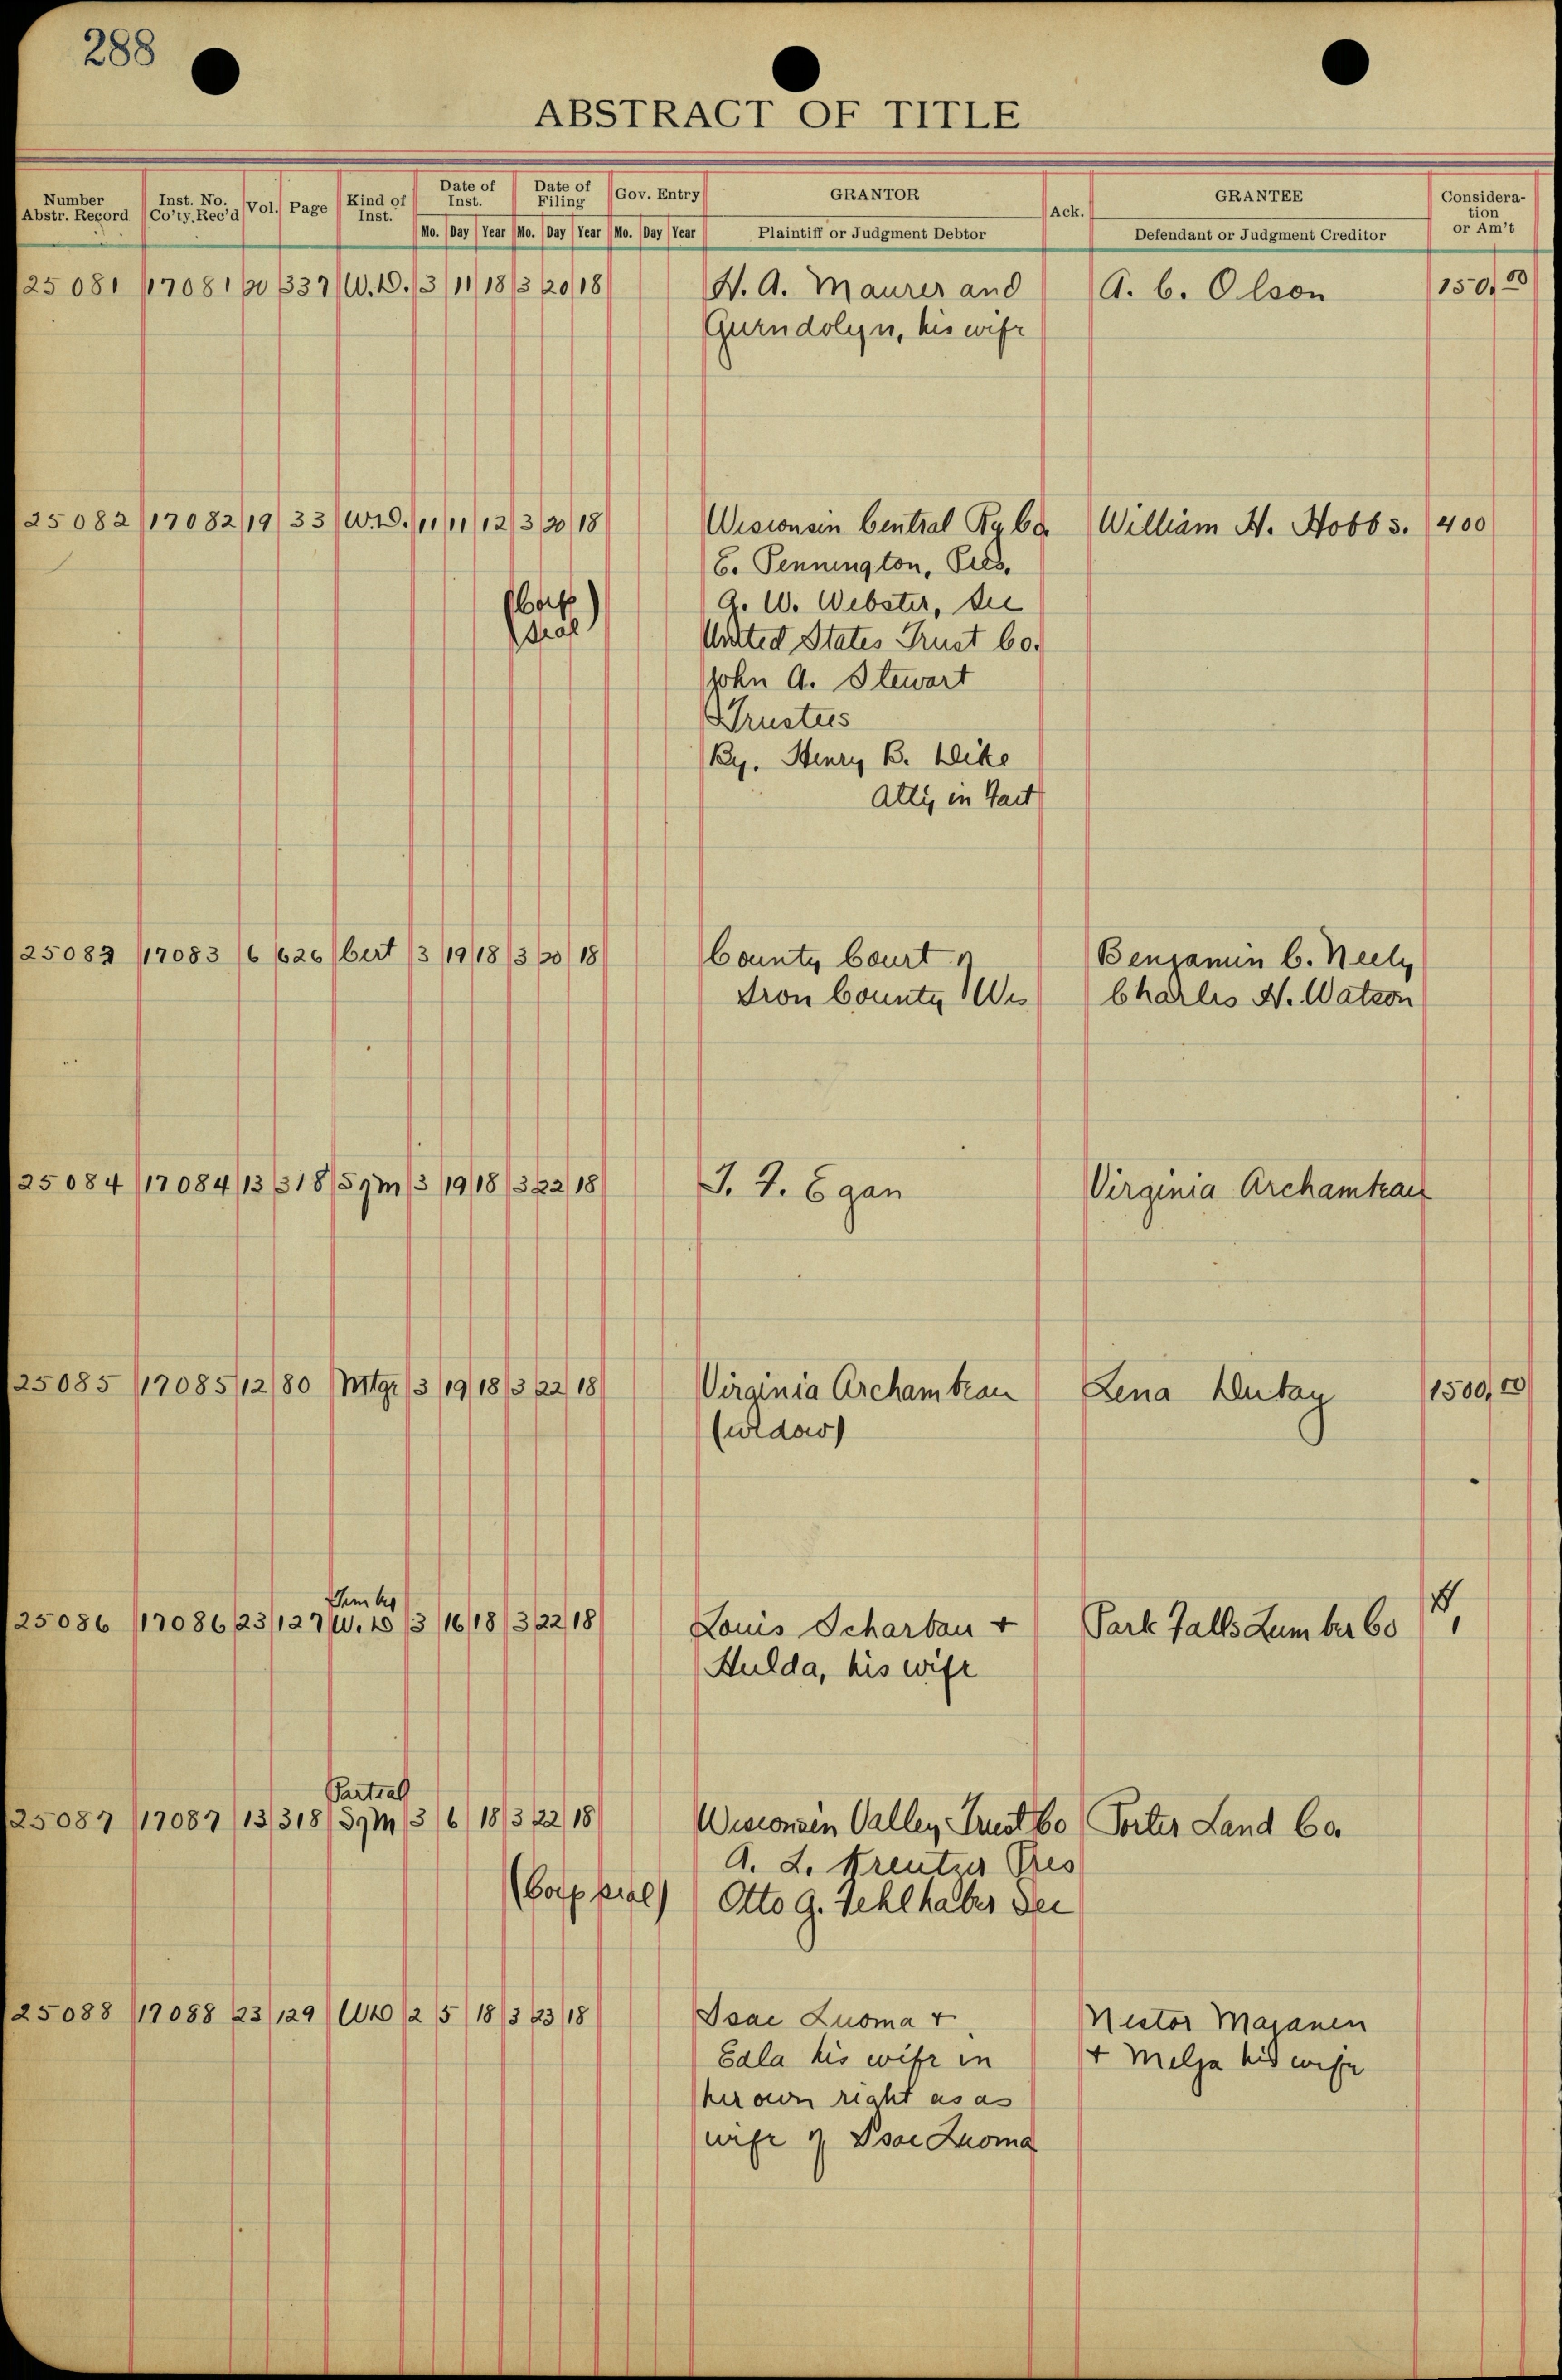 288
ABSTRACT OF TITLE
Number Abstr. Record | Inst. No. Co'ty. Rec'd | Vol. | Page | Kind of Inst. | Date of Inst. Mo. Day Year | Date of Filing Mo. Day Year | Gov. Entry Mo. Day Year | GRANTOR Plaintiff or Judgment Debtor | Ack. | GRANTEE Defendant or Judgment Creditor | Consideration or Am't
25081 17081 20 337 W.D. 3 11 18 3 20 18 H. A. Maurer and A. C. Olson 150.00
Gurndolyn, his wife
25082 17082 19 33 W.D. 11 11 12 3 20 18 Wisconsin Central Ry Co. William H. Hobbs. 400
E. Pennington, Pres.
(Corp G. W. Webster, Sec
Seal) United States Trust Co.
John A. Stewart
Trustees
By. Henry B. Dike
Atty in Fact
25083 17083 6 626 Cert 3 19 18 3 20 18 County Court of Benjamin C. Neely
Iron County Wis Charles H. Watson
25084 17084 13 318 SyM 3 19 18 3 22 18 J. F. Egan Virginia Archambeau
25085 17085 12 80 Mtge 3 19 18 3 22 18 Virginia Archambeau Lena Dutay 1500.00
(widow)
Timber
25086 17086 23 127 W.D 3 16 18 3 22 18 Louis Scharbau + Park Falls Lumber Co
Hulda, his wife
Partial
25087 17087 13 318 SyM 3 6 18 3 22 18 Wisconsin Valley Trust Co Porter Land Co.
A. L. Kreutzer Pres
(Corp seal) Otto G. Fehlhaber Sec
25088 17088 23 129 WD 2 5 18 3 23 18 Isac Luoma + Nestor Majanen
Edla his wife in + Melja his wife
her own right as as
wife of Isac Luoma